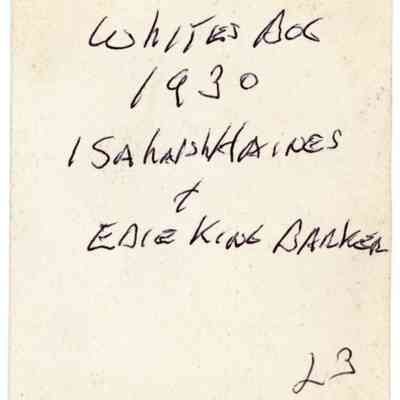 WHITES BOG
1930
HAINES
+
EDIE KING BARKER
L3